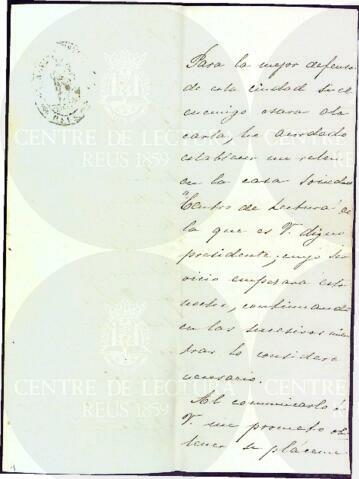 Para la mejor defensa
de esta ciudad si el
enemigo osara ata
carla, he acordado
establecer un reten
en la casa
"Centro de Lectura" de
la que es V. digno
presidente; cuyo ser
vicio empezará esta
noche, continuando
en las sucesivas mien
tras lo considere
necesario.
Al comunicarlo á
V. me prometo ob
tener su pláceme
CENTRE DE LECTURA
REUS 1859
CENTRE DE LECTURA
REUS 1859